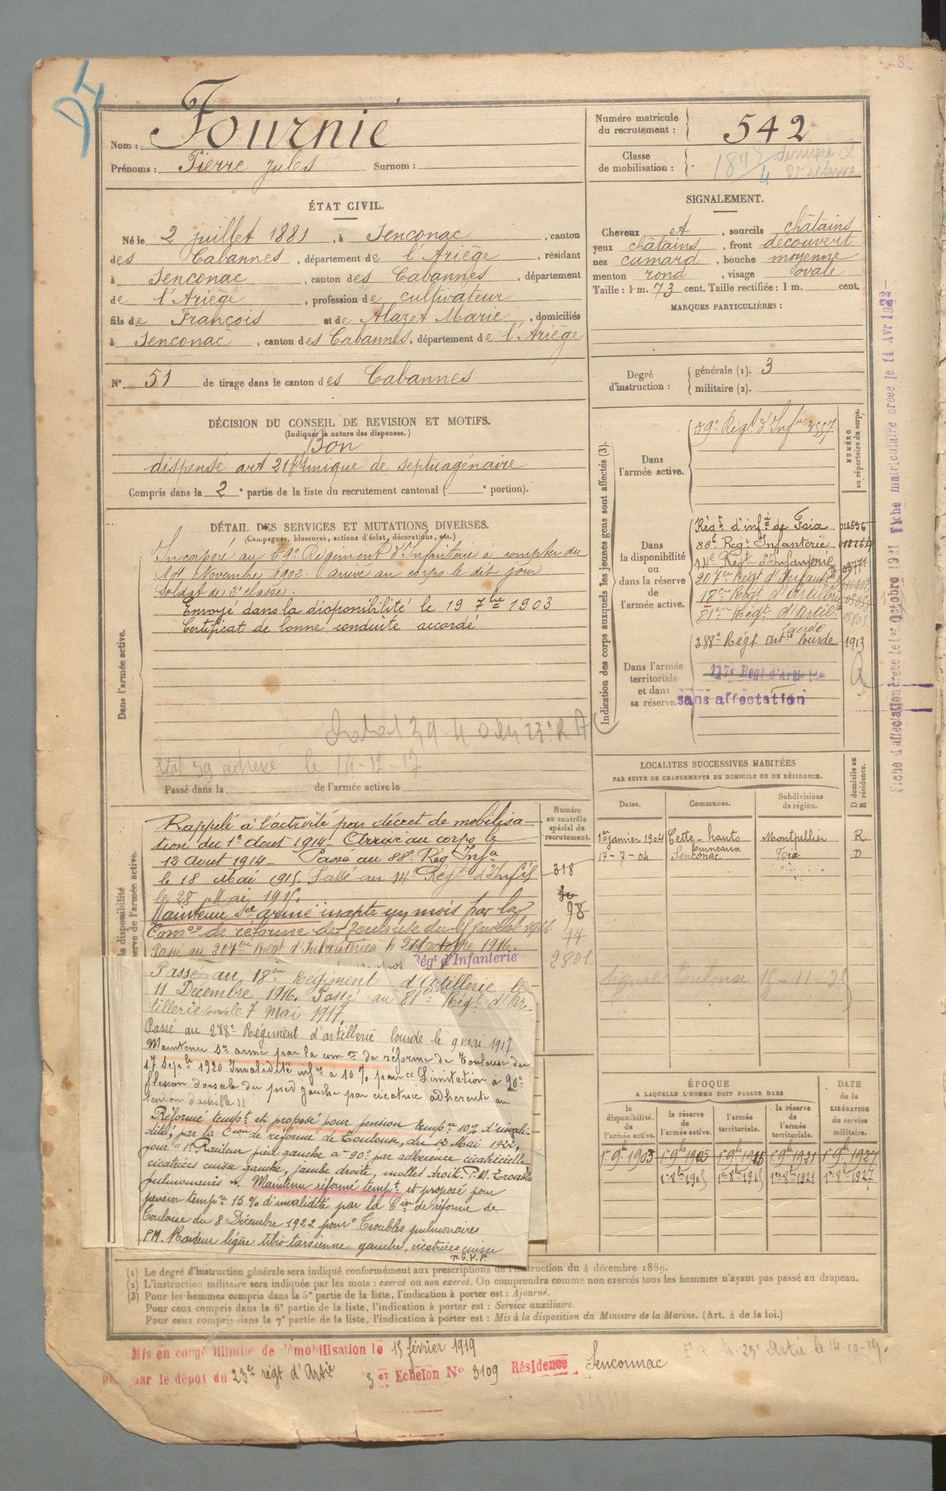 Nom : Fournié
Prénoms : Pierre Jules Surnom :
Numéro matricule du recrutement : 542
Classe de mobilisation :
ÉTAT CIVIL.
Né le 2 juillet 1881, à Senconac, canton
des Cabannes, département de l'Ariège, résidant
à Senconac, canton des Cabannes, département
de l'Ariège, profession de cultivateur
fils de François et de Alazet Marie, domiciliés
à Senconac, canton des Cabannes, département de l'Ariège
N° 51 de tirage dans le canton des Cabannes
SIGNALEMENT.
Cheveux et, sourcils châtains
yeux châtains, front découvert
nez camard, bouche moyenne
menton rond, visage ovale
Taille : 1 m. 73 cent. Taille rectifiée : 1 m. cent.
MARQUES PARTICULIÈRES :
Degré d'instruction : générale (1). 3
militaire (2).
DÉCISION DU CONSEIL DE REVISION ET MOTIFS.
(Indiquer la nature des dispenses.)
Bon
dispensé art 21 fils unique de septuagénaire
Compris dans la 2e partie de la liste du recrutement cantonal ( e portion).
DÉTAIL DES SERVICES ET MUTATIONS DIVERSES.
(Campagnes, blessures, actions d'éclat, décorations, etc.)
Dans l'armée active.
Incorporé au 59e Régiment d'Infanterie à compter du
14 Novembre 1902. arrivé au corps le dit jour
Soldat de 2e classe.
Envoyé dans la disponibilité le 19 7bre 1903
Certificat de bonne conduite accordé
Etat 39 adressé le 10-12-17
Passé dans la de l'armée active le
Indication des corps auxquels les jeunes gens sont affectés (3).
NUMÉRO au répertoire du corps.
Dans l'armée active.
59e Régt d'Infie
Dans la disponibilité ou dans la réserve de l'armée active.
Régt d'infie de Foix
88e Régt Infanterie
14e Régt d'Infanterie
207e Régt d'Infanterie
18e Régt d'Artillerie
81e Régt d'Artie lourde
288e Régt Artie lourde 1913
Dans l'armée territoriale et dans sa réserve.
sans affectation
Fiche matriculaire créée le 14 Avr 1922
LOCALITES SUCCESSIVES HABITÉES
PAR SUITE DE CHANGEMENTS DE DOMICILE OU DE RÉSIDENCE.
Dates. Communes. Subdivisions de région. D domicile ou R résidence.
1er janvier 1904 Cette-hauts fourneaux Montpellier R
17-7-04 Senconac Foix D
Numéro au contrôle spécial du recrutement.
318
98
2801
Rappelé à l'activité par décret de mobilisa-
tion du 1er Aout 1914. Arrivé au corps le
12 Aout 1914. Passé au 88e Rég Infie
le 18 Mai 1915. Passé au 14e Régt d'Infie
le 28 Mai 1915.
Maintenu sce armé inapte un mois par la
Passé au 207e Régt d'Infanterie le
Régt d'Infanterie
Passé au 18e Régiment d'Artillerie le
11 Décembre 1916. Passé au 81e Régt d'Ar-
tillerie lourde le 7 Mai 1917
Passé au 288e Régiment d'artillerie lourde le 9 mai 1917
Maintenu sce armé par la comon de réforme de Toulouse du
17 Sepbre 1920 Invalidité infre à 10% pour : Limitation à 90°
flexion dorsale du pied gauche par cicatrice adhérente au
tendon d'achille
Réformé tempt et proposé pour pension tempre 10% d'invali-
dité, par la Cion de réforme de Toulouse, du 12 Mai 1922,
pour : Raideur pied gauche à 90° par adhérence cicatricielle
cicatrices cuisse gauche, jambe droite, mollet droit. P.M. Troubles
pulmonaires. Maintenu réformé tempt et proposé pour
pension tempre 15% d'invalidité par la Cion de réforme de
Toulouse du 8 Décembre 1922 pour : Troubles pulmonaires
P.M. Raideur légère tibio-tarsienne gauche, cicatrices cuisse
T.S.V.P.
Signalé Toulouse
ÉPOQUE
A LAQUELLE L'HOMME DOIT PASSER DANS
la disponibilité de l'armée active. la réserve de l'armée active. l'armée territoriale. la réserve de l'armée territoriale.
DATE de la LIBÉRATION du service militaire.
(1) Le degré d'instruction générale sera indiqué conformément aux prescriptions de l'instruction du 4 décembre 1889.
(2) L'instruction militaire sera indiquée par les mots : exercé ou non exercé. On comprendra comme non exercés tous les hommes n'ayant pas passé au drapeau.
(3) Pour les hommes compris dans la 5e partie de la liste, l'indication à porter est : Ajourné.
Pour ceux compris dans la 6e partie de la liste, l'indication à porter est : Service auxiliaire.
Pour ceux compris dans la 7e partie de la liste, l'indication à porter est : Mis à la disposition du Ministre de la Marine. (Art. 4 de la loi.)
Mis en congé illimité de démobilisation le 15 février 1919
par le dépôt du 23e régt d'Artie 3e Echelon N° 3109 Résidence Senconnac